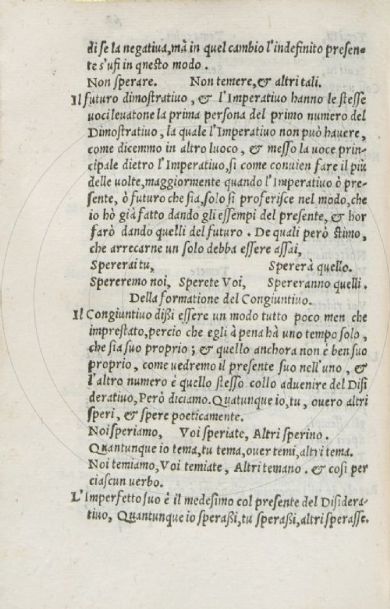 di se la negatiua, mà in quel cambio l'indefinito presen-
te s'usi in questo modo.
Non sperare. Non temere, & altri tali.
Il futuro dimostratiuo, & l'Imperatiuo hanno le stesse
uoci leuatone la prima persona del primo numero del
Dimostratiuo, la quale l'Imperatiuo non può hauere,
come dicemmo in altro luoco, & messo la uoce prin-
cipale dietro l'Imperatiuo, si come conuien fare il più
delle uolte, maggiormente quando l'Imperatiuo è pre-
sente, ò futuro che sia, solo si proferisce nel modo, che
io hò già fatto dando gli essempi del presente, & hor
farò dando quelli del futuro. De quali però stimo,
che arrecarne un solo debba essere assai,
Spererai tu, Spererà quello.
Spereremo noi, Sperete Voi, Spereranno quelli.
Della formatione del Congiuntiuo.
Il Congiuntiuo dißi essere un modo tutto poco men che
imprestato, percio che egli à pena hà uno tempo solo,
che sia suo proprio; & quello anchora non è ben suo
proprio, come uedremo il presente suo nell'uno, &
l'altro numero è quello stesso collo aduenire del Disi
deratiuo, Però diciamo. Quatunque io, tu, ouero altri
speri, & spere poeticamente.
Noi speriamo, Voi speriate, Altri sperino.
Quantunque io tema, tu tema, ouer temi, altri tema.
Noi temiamo, Voi temiate, Altri temano. & cosi per
ciascun uerbo.
L'Imperfetto suo è il medesimo col presente del Disidera-
tiuo, Quantunque io speraßi, tu speraßi, altri sperasse.